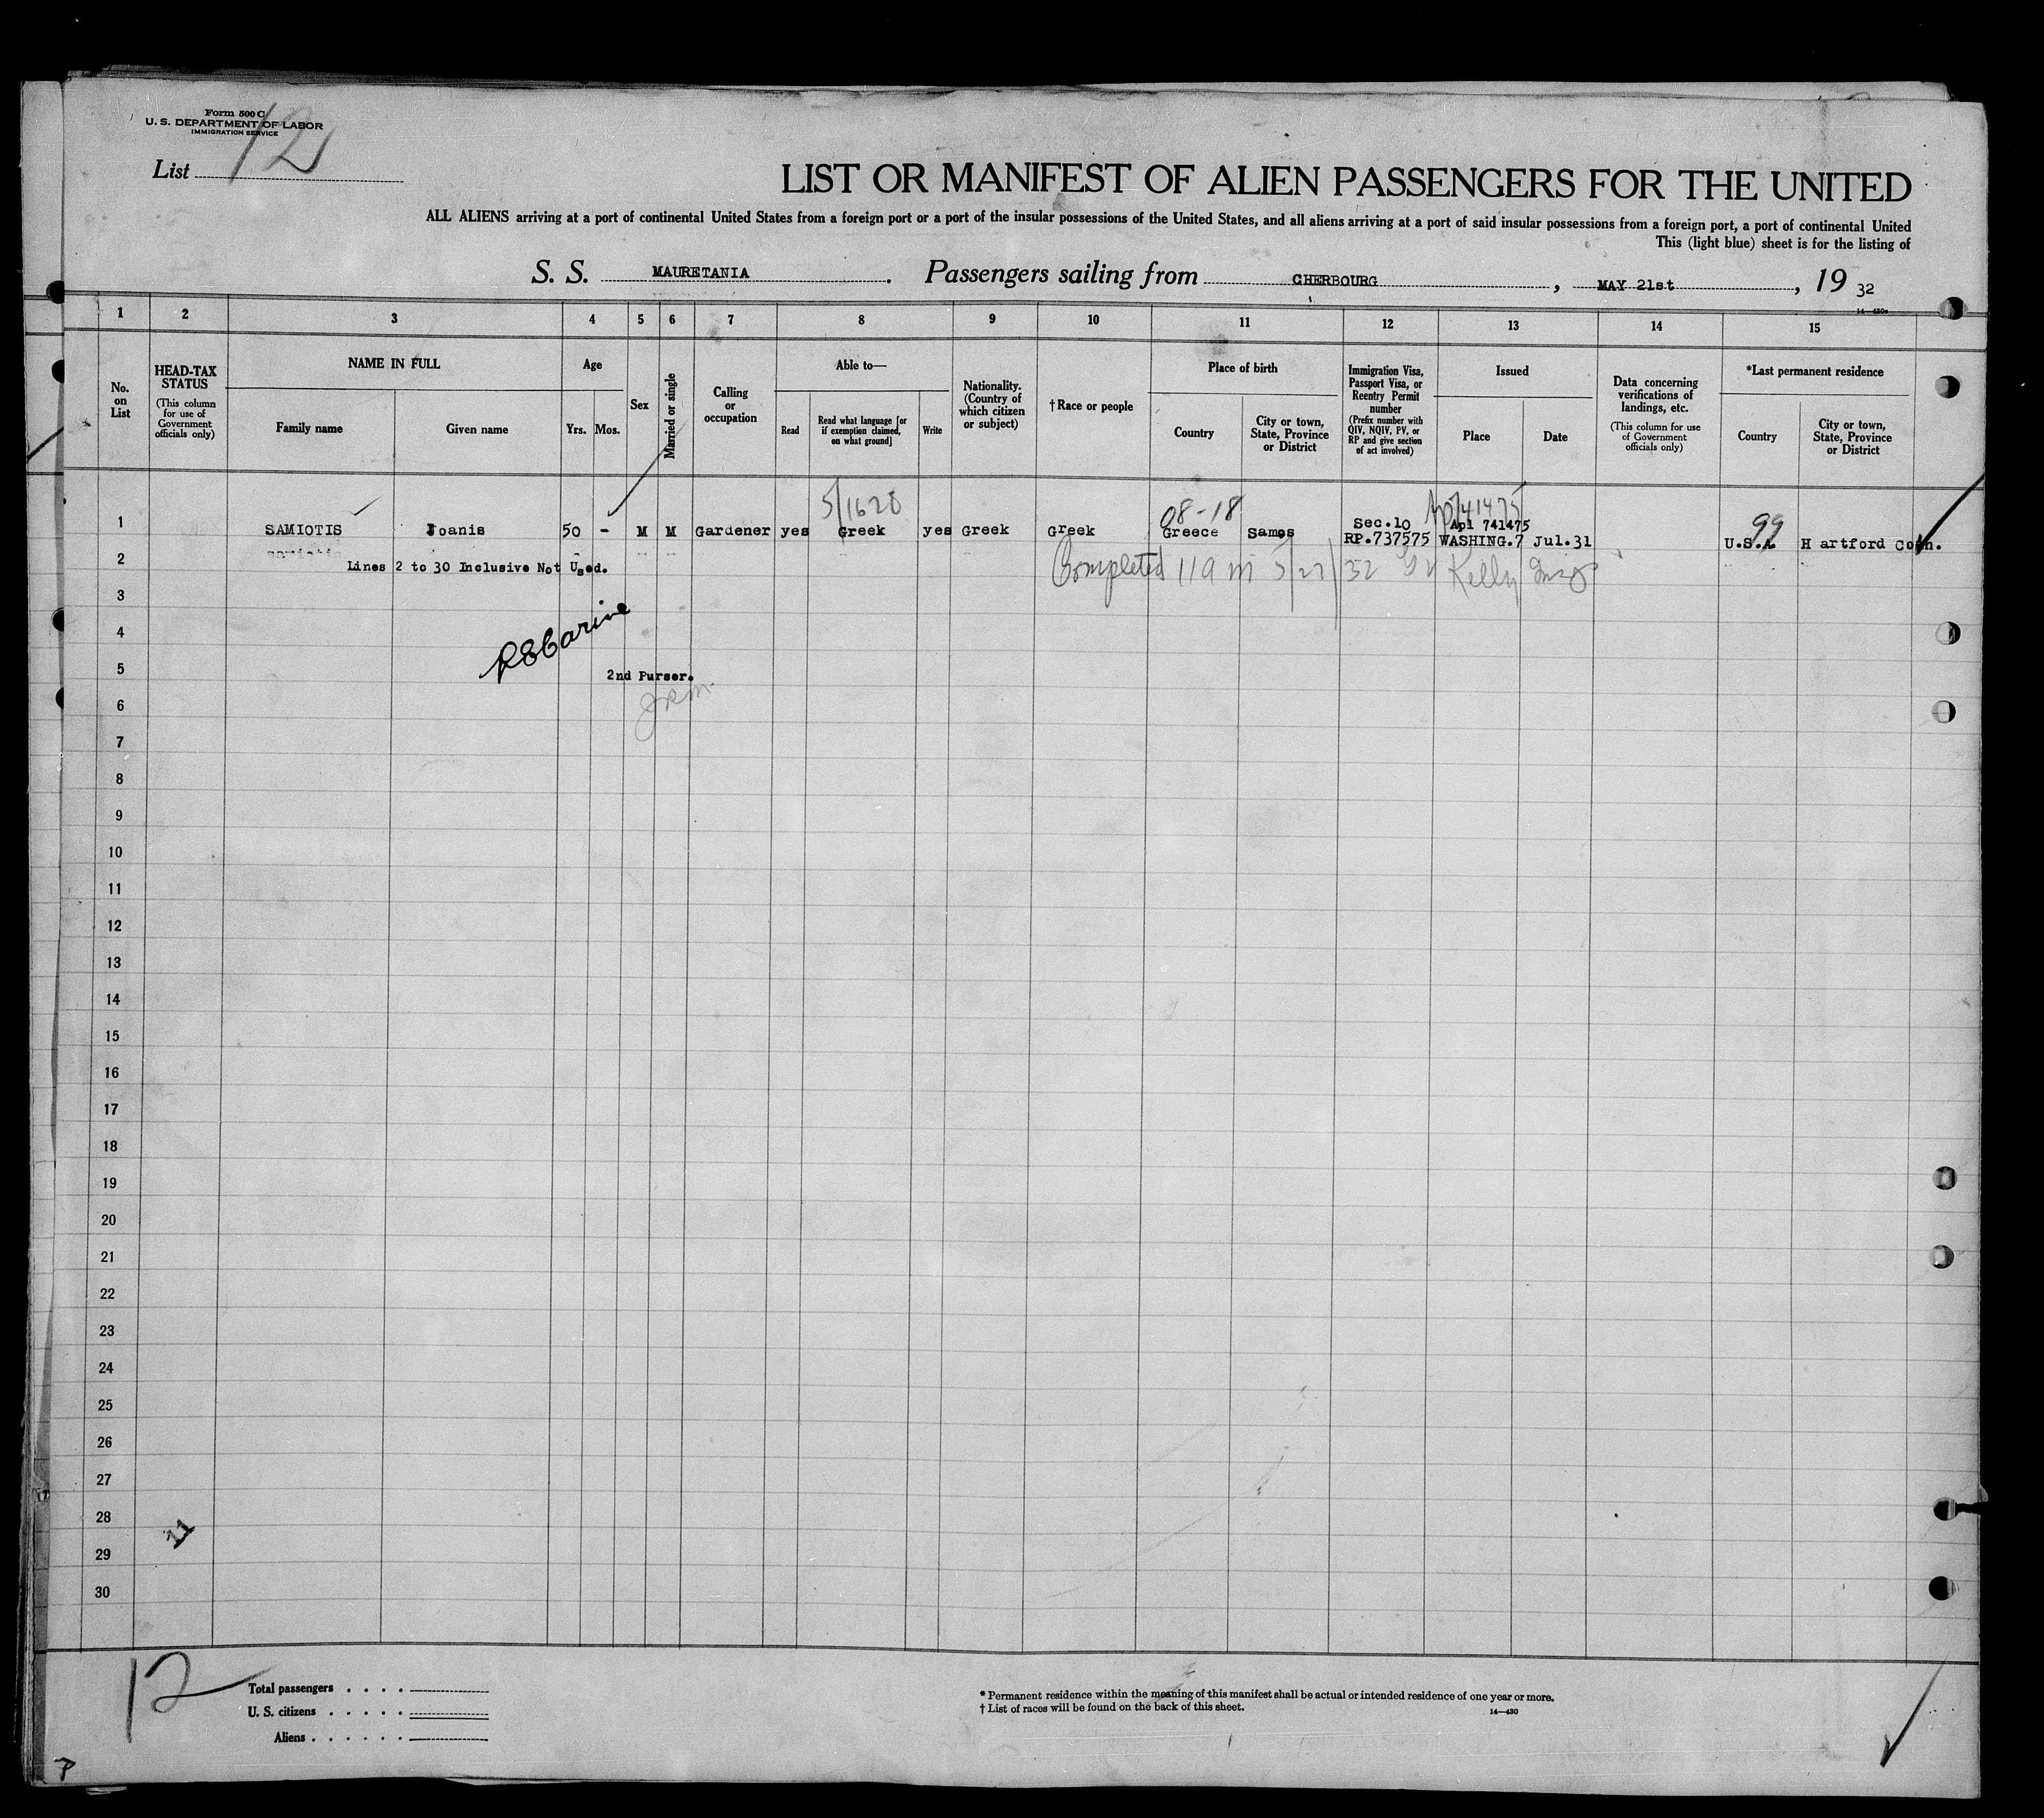 Form 500 C
U. S. DEPARTMENT OF LABOR
IMMIGRATION SERVICE
List 12
LIST OR MANIFEST OF ALIEN PASSENGERS FOR THE UNITED
ALL ALIENS arriving at a port of continental United States from a foreign port or a port of the insular possessions of the United States, and all aliens arriving at a port of said insular possessions from a foreign port, a port of continental United
This (light blue) sheet is for the listing of
S. S. MAURETANIA. Passengers sailing from CHERBOURG, MAY 21st, 19 32
1 2 3 4 5 6 7 8 9 10 11 12 13 14 15
No. on List
HEAD-TAX STATUS (This column for use of Government officials only)
NAME IN FULL
Family name
Given name
Age
Yrs. Mos.
Sex
Married or single
Calling or occupation
Able to—
Read
Read what language [or if exemption claimed, on what ground]
Write
Nationality. (Country of which citizen or subject)
†Race or people
Place of birth
Country
City or town, State, Province or District
Immigration Visa, Passport Visa, or Reentry Permit number (Prefix number with QIV, NQIV, PV, or RP and give section of act involved)
Issued
Place
Date
Data concerning verifications of landings, etc. (This column for use of Government officials only)
*Last permanent residence
Country
City or town, State, Province or District
5/1628 08-18 Apl 741475 99
Sec.10 Apl 741475
1 SAMIOTIS Joanis 50 - M M Gardener yes Greek yes Greek Greek Greece Samos RP.737575 WASHING.7 Jul.31 U.S.A. H artford Conn.
2 Lines 2 to 30 Inclusive Not Used. Completed 11 a m 5/27/32 Kelly Insp
3
4
5 2nd Purser.
6
7
8
9
10
11
12
13
14
15
16
17
18
19
20
21
22
23
24
25
26
27
28
29
30
12
Total passengers . . . .
U. S. citizens . . . . .
Aliens . . . . . .
* Permanent residence within the meaning of this manifest shall be actual or intended residence of one year or more.
† List of races will be found on the back of this sheet.
14—430